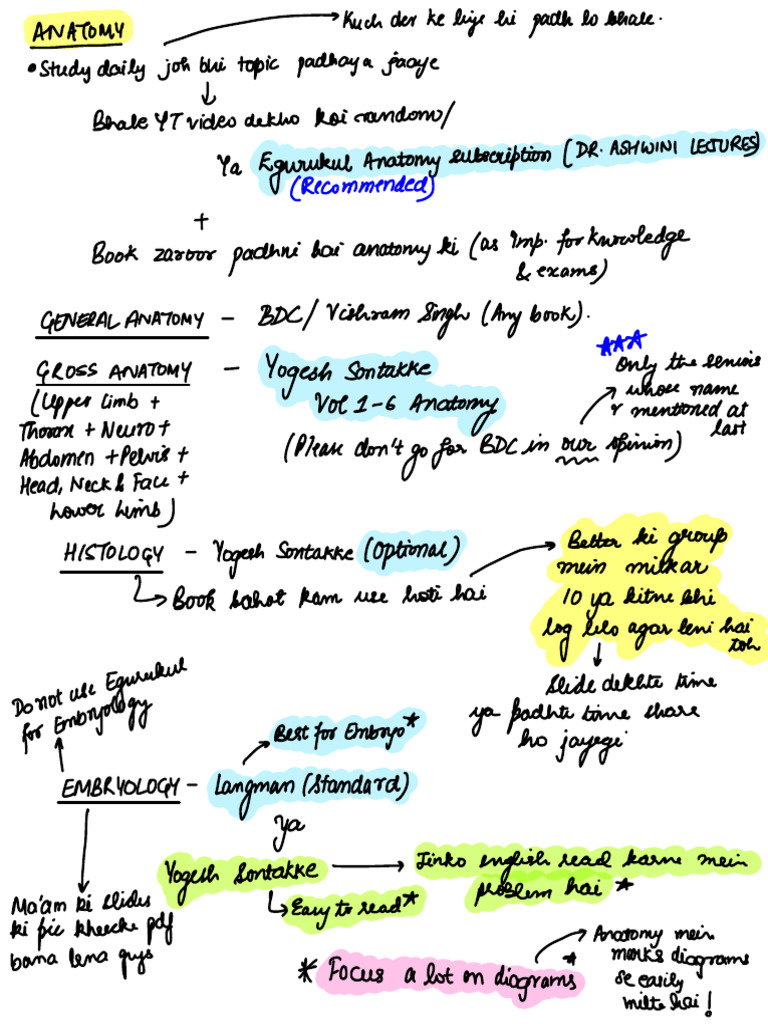 ANATOMY
Kuch der ke liye hi padh lo bhale.
• Study daily joh bhi topic padhaya jaaye
Bhale YT video dekho koi random/
Ya Egurukul Anatomy subscription (DR. ASHWINI LECTURES)
(Recommended)
+
Book zaroor padhni hai anatomy ki (as imp. for knowledge
& exams)
GENERAL ANATOMY - BDC/ Vishram Singh (Any book).
GROSS ANATOMY - Yogesh Sontakke
Vol 1-6 Anatomy
(Please don't go for BDC in our opinion)
Only the seniors
whose name
r mentioned at
last
(Upper limb +
Thorax + Neuro +
Abdomen + Pelvis +
Head, Neck & Face +
Lower limb)
HISTOLOGY - Yogesh Sontakke (Optional)
Book bahot kam use hoti hai
Better ki group
mein milkar
10 ya kitne bhi
log lelo agar leni hai
toh
Slide dekhte time
ya padhte time share
ho jayegi
Do not use Egurukul
for Embryology
Best for Embryo*
EMBRYOLOGY - Langman (Standard)
Ya
Yogesh Sontakke
Jinko english read karne mein
problem hai *
Easy to read*
Ma'am ki slides
ki pic kheecke pdf
bana lena guys
* Focus a lot on diagrams *
Anatomy mein
marks diagrams
se easily
milte hai!